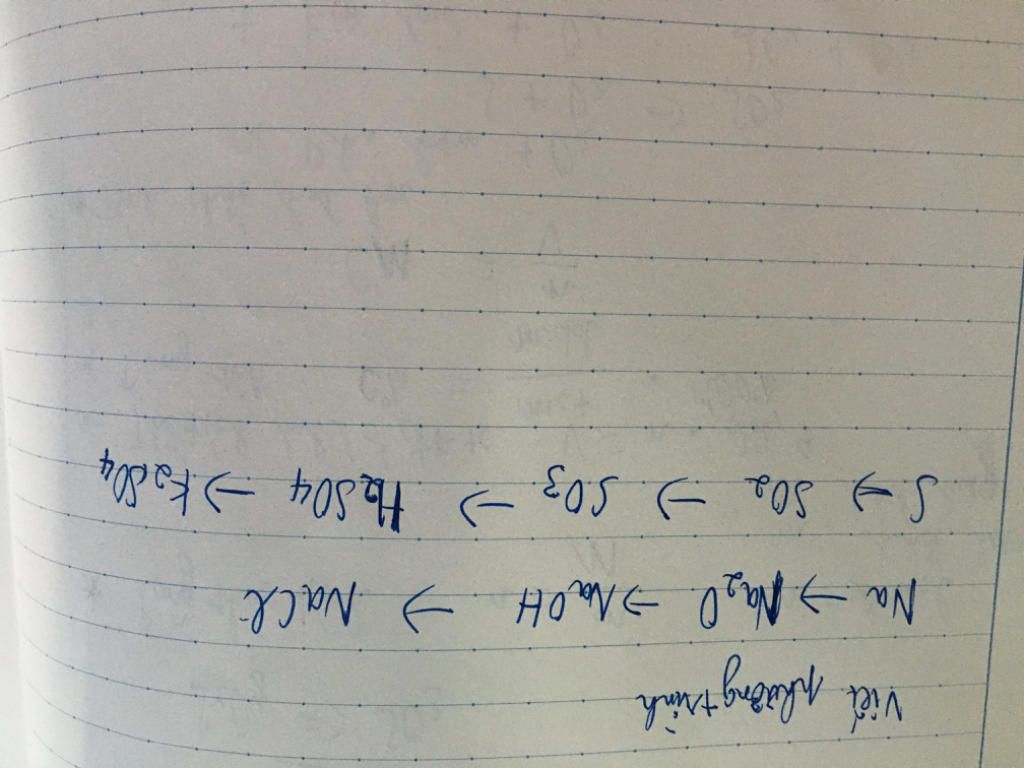 Viết phương trình
Na → Na₂O → NaOH → NaCl
S → SO₂ → SO₃ → H₂SO₄ → K₂SO₄